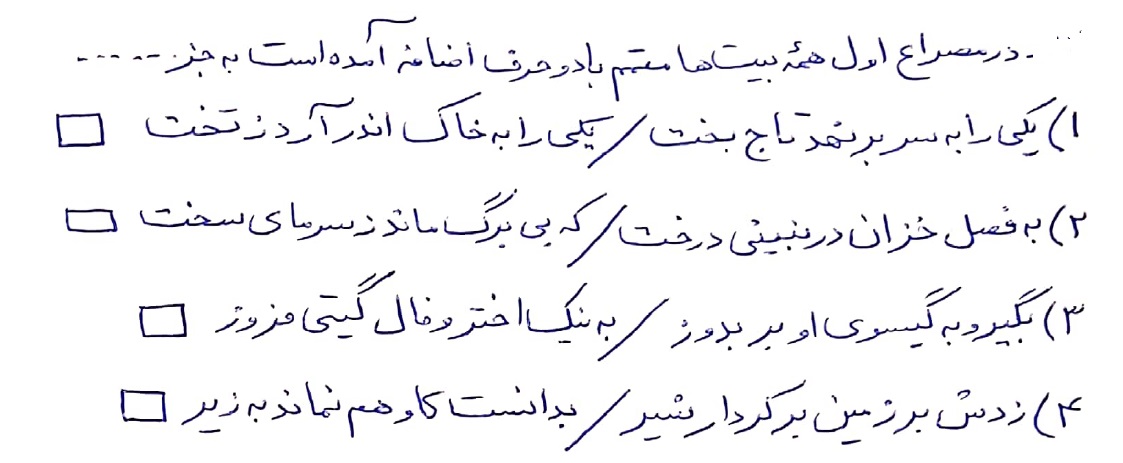 . در مصراع اول همهٔ بیت‌ها متمم با دو حرف اضافه آمده است به جز .....
۱) یکی را به سر بر نهد تاج بخت / یکی را به خاک اندر آرد ز تخت
۲) به فصل خزان در نبینی درخت / که بی برگ ماند ز سرمای سخت
۳) بگیر و به گیسوی او بر بدوز / به نیک اختر و فال گیتی فروز
۴) زدش بر زمین بر کردار شیر / بدانست کاو هم نماند به زیر